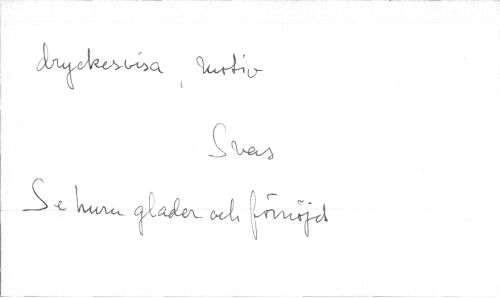 dryckesvisa, motiv
Svas
Se huru glader och förnöjd